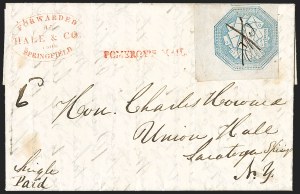 FORWARDED
BY
HALL & CO.
FROM
SPRINGFIELD
POMEROY'S MAIL
6
Hon. Charles Howard
Union Hall
Saratoga Springs
N. Y.
Single
Paid